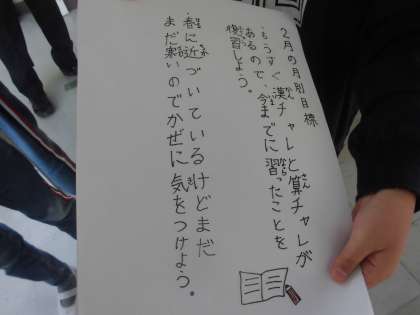 2月の月別目標
・もうすぐ漢チャレと算チャレが
あるので、今までに習ったことを
復習しよう。
・春に近づいているけどまだ
まだ寒いのでかぜに気をつけよう。